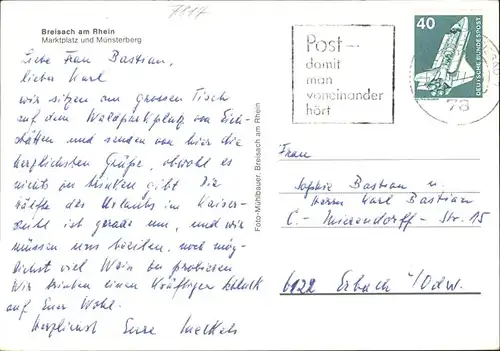 7817
Breisach am Rhein
Marktplatz und Münsterberg
Liebe Frau Bastian,
lieber Karl
wir sitzen am grossen Tisch
auf dem Waldparkplatz von Eich-
stätten und senden von hier die
herzlichsten Grüße, obwohl es
nichts zu trinken gibt. Die
Hälfte des Urlaubs im Kaiser-
stuhl ist gerade um, und wir
müssen uns beeilen, noch mög-
lichst viel Wein zu probieren
Wir trinken einen kräftigen Schluck
auf Euer Wohl.
Herzlichst Eure
Foto-Mühlbauer, Breisach am Rhein
Post -
damit
man
voneinander
hört
78
40
DEUTSCHE BUNDESPOST
Frau
Sophie Bastian u.
Herrn Karl Bastian
C.-Mierendorff-Str. 15
6122 Erbach i/Odw.